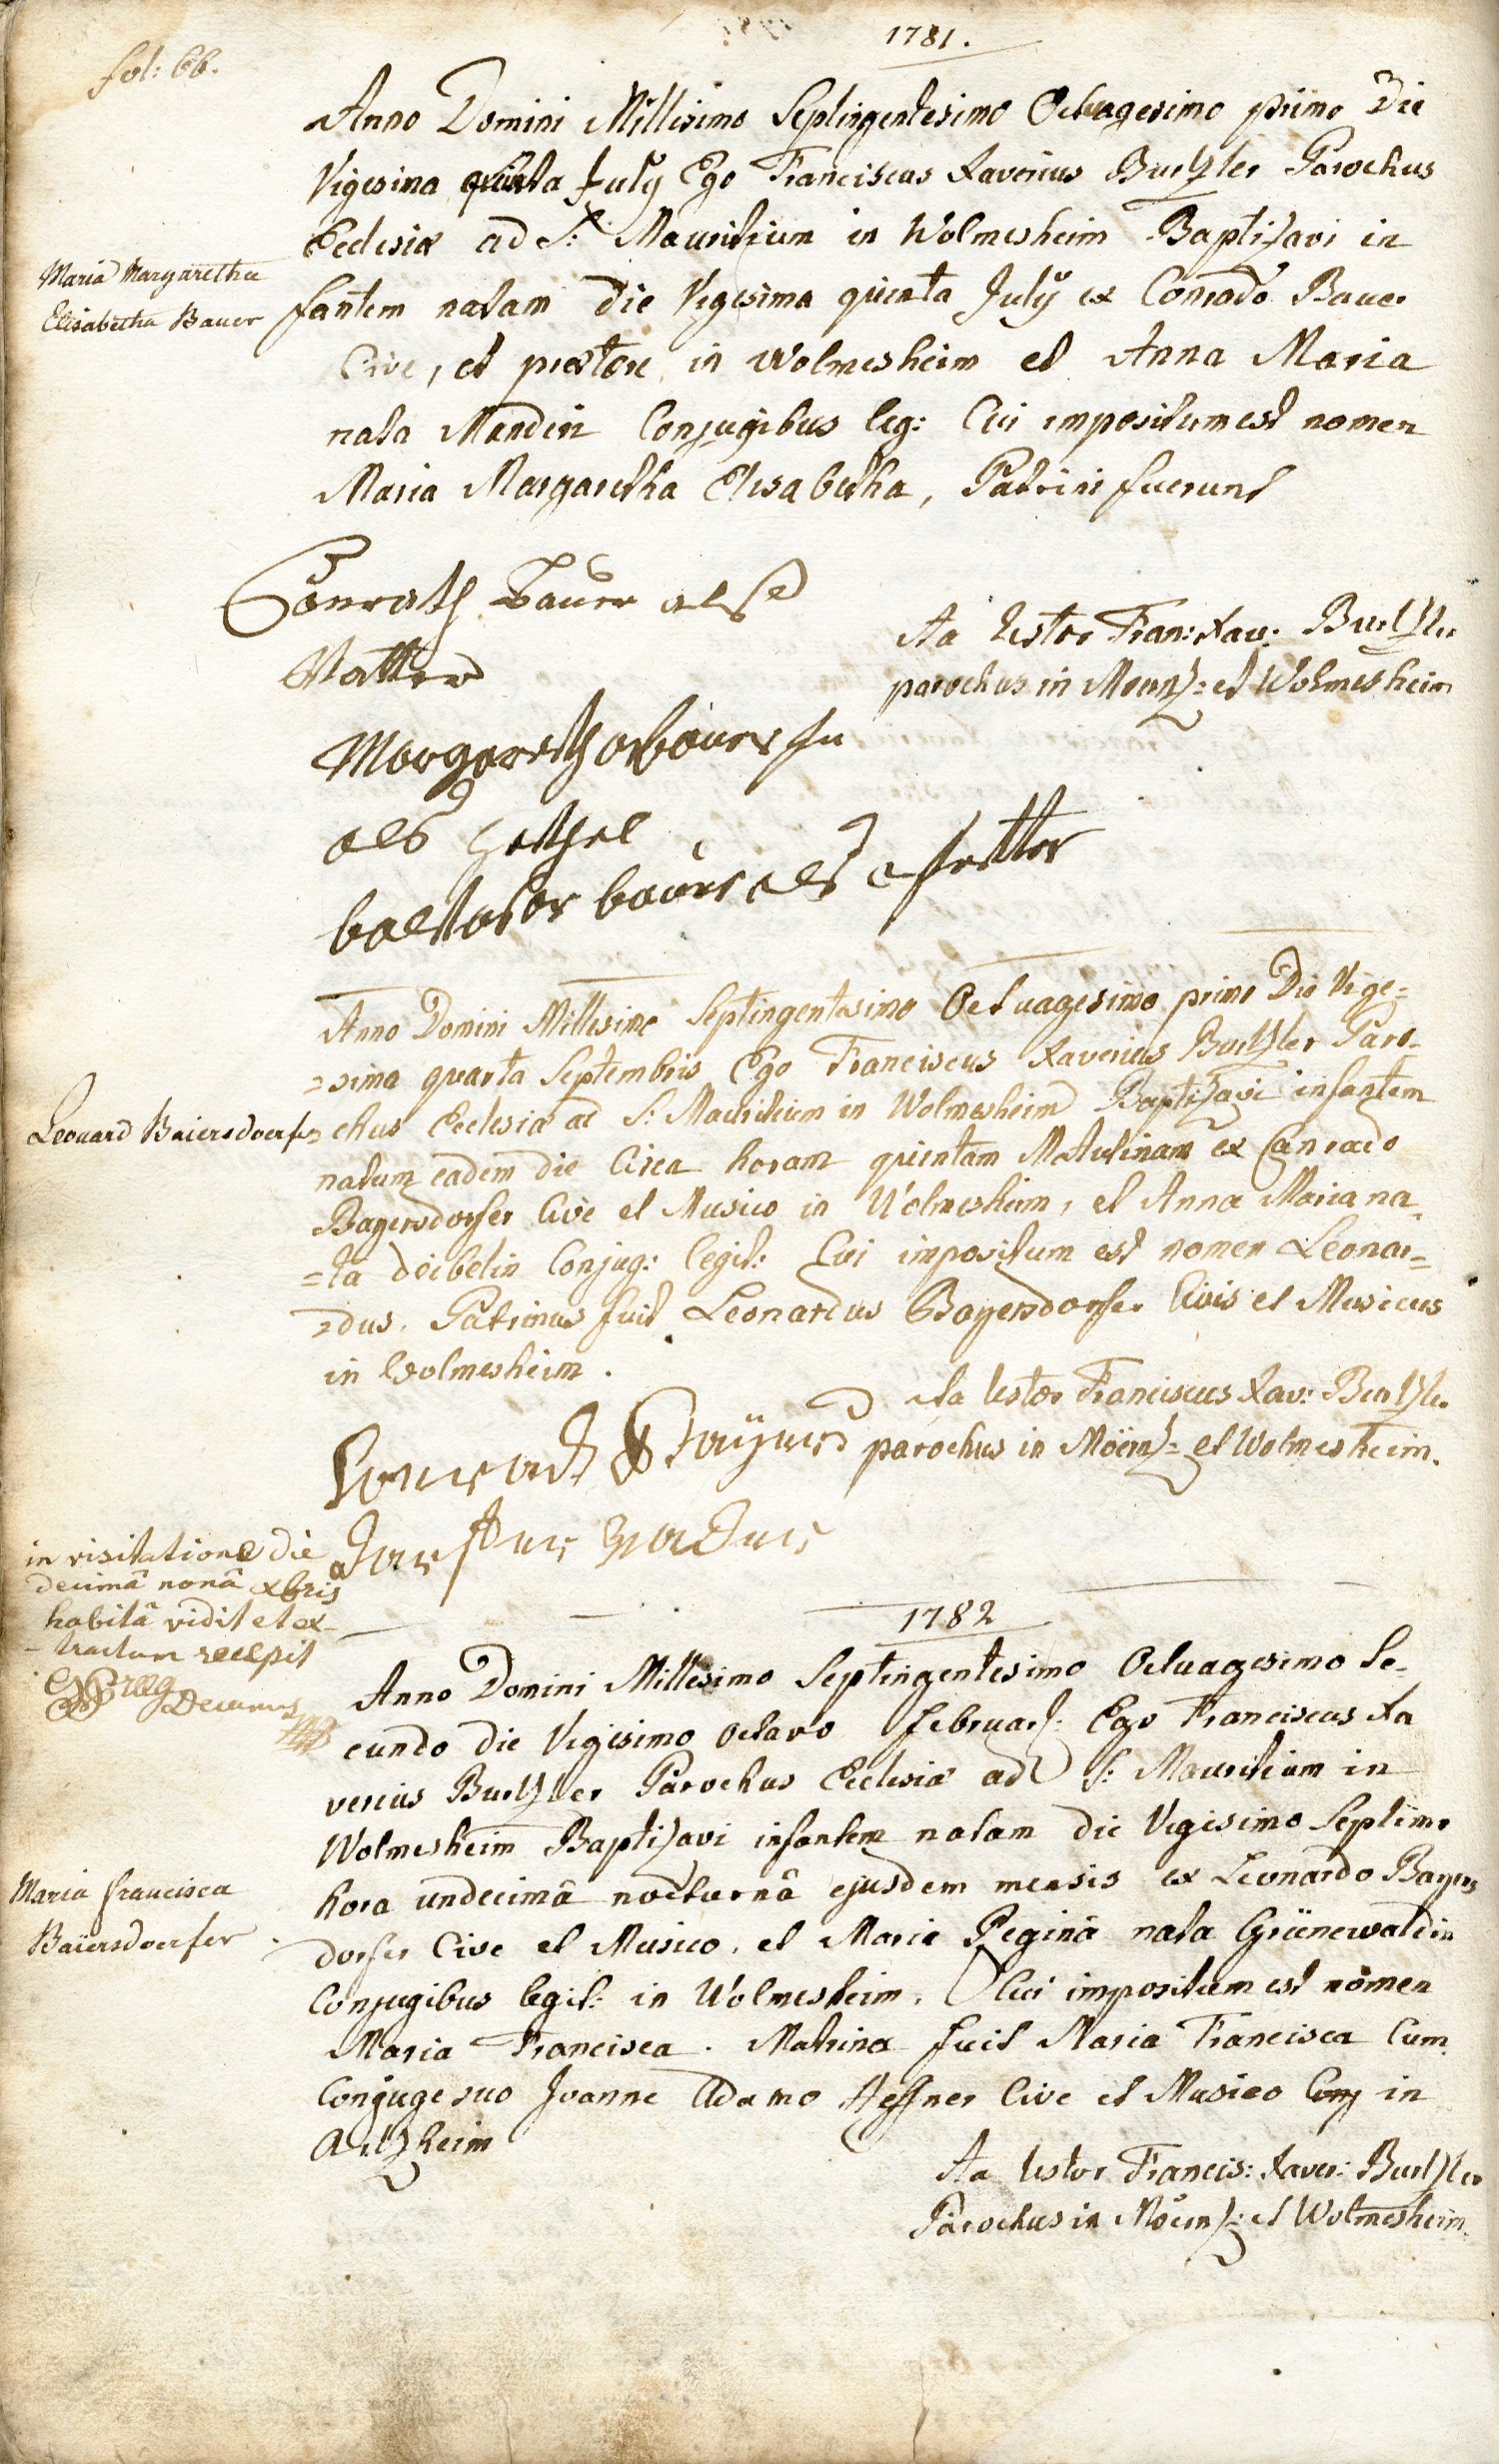 fol: 66.
1781.
Anno Domini Millesimo Septingentesimo Octuagesimo primo Die
Vigesima quinta July Ego Franciscus Xaverius Burtzler Parochus
Ecclesiæ ad S: Mauritium in Wolmesheim Baptizavi in
Maria Margaretha
Elisabetha Bauer
fantem natam die Vigesima quinta July ex Conrado Bauer
Cive, et prætore in Wolmesheim et Anna Maria
nata Mandin Conjugibus leg: Cui impositum est nomen
Maria Margaretha Elisabetha, Patrini fuerunt
Conrath Bauer alß
Vatter
Ita testor Fran: Xav: Burtzler
parochus in Moerz= et Wolmesheim
Margaretha bauer
als gethel
baltasar bauer als gfetter
Anno Domini Millesimo Septingentesimo Octuagesimo primo Die Vige=
=sima quarta Septembris Ego Franciscus Xaverius Burtzler Paro-
Leonard Baiersdoerfer
chus Ecclesiæ ad S: Mauritium in Wolmesheim Baptizavi infantem
natum eadem die Circa horam quintam Matutinam ex Conrado
Bayersdorfer Cive et Musico in Wolmesheim, et Anna Maria na
=ta deibelin Conjug: legit: Cui impositum est nomen Leonar=
=dus. Patrinus fuit Leonardus Bayersdorfer Civis et Musicus
in Wolmesheim.
Ita testor Franciscus Xav: Burtzler
parochus in Möerz= et Wolmesheim.
in visitatione die
decimâ nonâ xbris
habitâ vidit et ex-
-tractum recepit
Decanus
1782
Anno Domini Millesimo Septingentesimo Octuagesimo Se=
cundo die Vigesimo Octavo februar: Ego Franciscus Xa
verius Burtzler Parochus Ecclesiæ ad S: Mauritium in
Wolmesheim Baptizavi infantem natam die Vigesimo Septimo
Maria francisca
Baiersdoerfer
hora undecimâ nocturnâ ejusdem mensis ex Leonardo Bayers
dorfer Cive et Musico, et Maria Reginâ nata Grünewaldin
Conjugibus legit: in Wolmesheim. Cui impositum est nomen
Maria Francisca. Matrina fuit Maria Francisca Cum
Conjuge suo Joanne Adamo Heffner Cive et Musico in
Artzheim
Ita testor Francis: Xaver: Burtzler
Parochus in Möerz: et Wolmesheim.